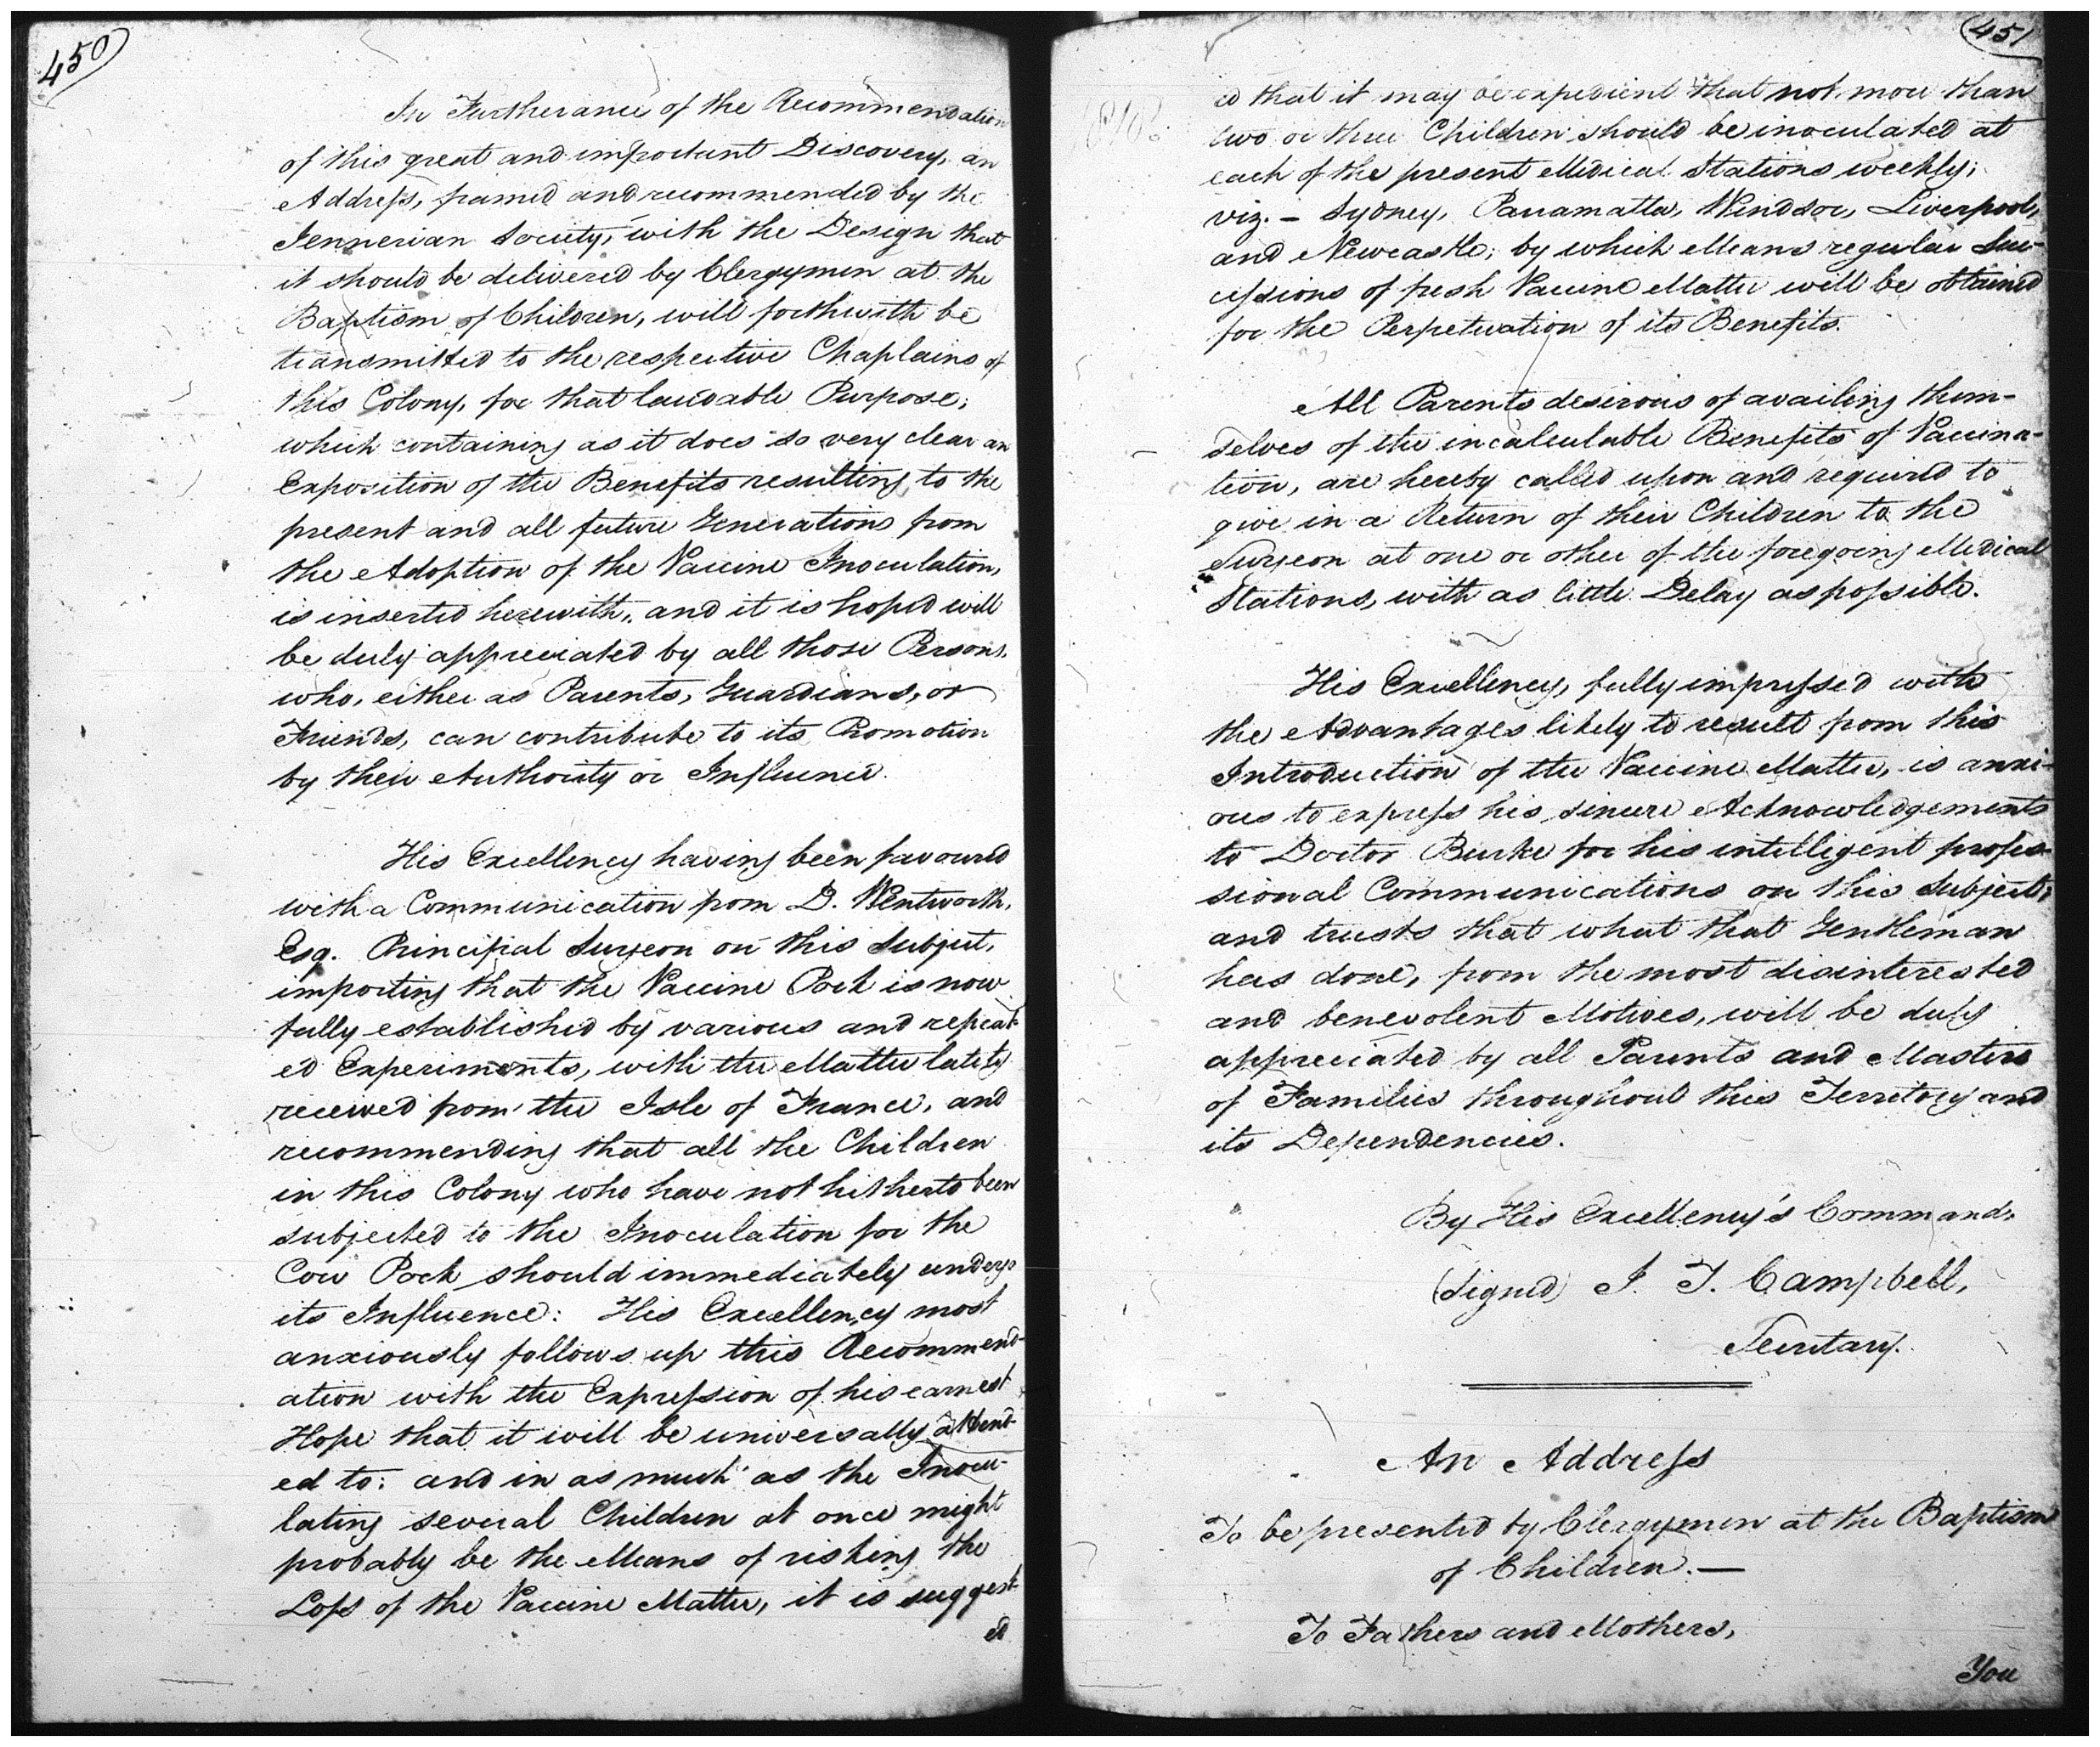 450
In Furtherance of the Recommendation
of this great and important Discovery, an
Address, framed and recommended by the
Jennerian Society, with the Design that
it should be delivered by Clergymen at the
Baptism of Children, will forthwith be
transmitted to the respective Chaplains of
this Colony, for that laudable Purpose;
which containing as it does so very clear an
Exposition of the Benefits resulting to the
present and all future Generations from
the Adoption of the Vaccine Inoculation,
is inserted herewith, and it is hoped will
be duly appreciated by all those Persons,
who, either as Parents, Guardians, or
Friends, can contribute to its Promotion
by their Authority or Influence.
His Excellency having been favoured
with a Communication from D. Wentworth,
Esq. Principal Surgeon on this Subject,
importing that the Vaccine Pock is now
fully established by various and repeat-
ed Experiments, with the Matter lately
received from the Isle of France, and
recommending that all the Children
in this Colony who have not hitherto been
subjected to the Inoculation for the
Cow Pock should immediately undergo
its Influence: His Excellency most
anxiously follows up this Recommend-
ation with the Expression of his earnest
Hope that it will be universally attend-
ed to: and in as much as the Inocu-
lating several Children at once might
probably be the Means of risking the
Loss of the Vaccine Matter, it is suggest-
ed
451
ed that it may be expedient that not more than
two or three Children should be inoculated at
each of the present Medical Stations weekly;
viz. – Sydney, Parramatta, Windsor, Liverpool,
and Newcastle; by which Means regular Suc-
cessions of fresh Vaccine Matter will be obtained
for the Perpetuation of its Benefits.
All Parents desirous of availing them-
selves of the incalculable Benefits of Vaccina-
tion, are hereby called upon and required to
give in a Return of their Children to the
Surgeon at one or other of the foregoing Medical
Stations, with as little Delay as possible.
His Excellency, fully impressed with
the Advantages likely to result from this
Introduction of the Vaccine Matter, is anxi-
ous to express his sincere Acknowledgements
to Doctor Burke for his intelligent profes-
sional Communications on this Subject,
and trusts that what that Gentleman
has done, from the most disinterested
and benevolent Motives, will be duly
appreciated by all Parents and Masters
of Families throughout this Territory and
its Dependencies.
By His Excellency's Command,
(Signed) J. T. Campbell,
Secretary.
An Address
To be presented by Clergymen at the Baptism
of Children. —
To Fathers and Mothers,
You